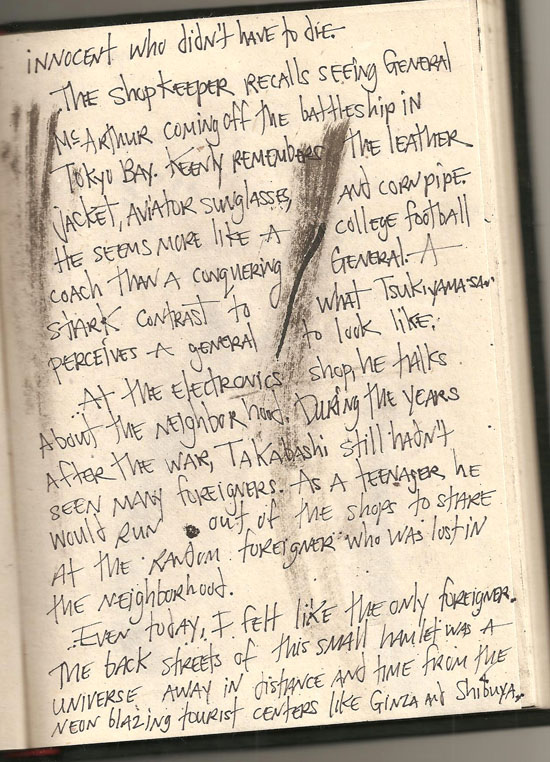 INNOCENT who didn't have to die.
The shopkeeper recalls seeing General
McArthur coming off the battleship in
Tokyo Bay. Keenly remembers the leather
jacket, aviator sunglasses, and cornpipe.
He seems more like a college football
coach than a conquering General. A
stark contrast to what Tsukiyama-san
perceives a general to look like.
At the electronics shop, he talks
about the neighborhood. During the years
after the war, Takahashi still hadn't
seen many foreigners. As a teenager, he
would run out of the shops to stare
at the random foreigner who was lost in
the neighborhood.
Even today, I felt like the only foreigner.
The back streets of this small hamlet was a
universe away in distance and time from the
neon blazing tourist centers like Ginza and Shibuya.